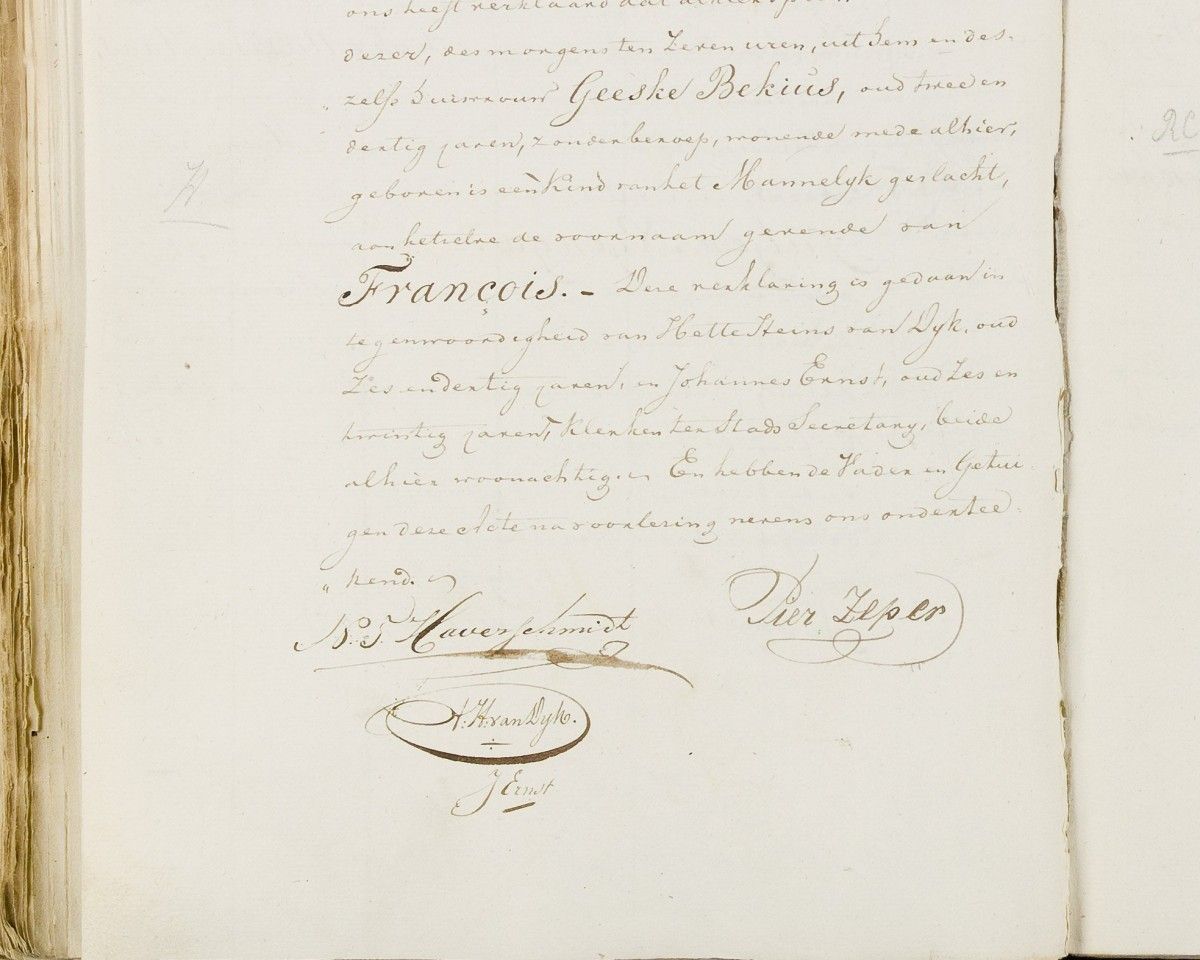 ons heeft verklaard dat
dezer, des morgens ten Zeven uren, uit hem en des-
zelfs huisvrouw Geeske Bekius, oud twee en
dertig jaren, zonder beroep, wonende mede alhier,
geboren is een kind van het Mannelyk geslacht,
aan hetzelve de voornaam gevende van
François. – Deze verklaring is gedaan in
tegenwoordigheid van Hette Heins van Dyk, oud
Zes en dertig jaren, en Johannes Ernst, oud Zes en
twintig jaren, Klerken ter Stads Secretary, beide
alhier woonachtig. En hebben de Vader en Getui-
gen deze Acte na voorlezing nevens ons ondertee-
" kend.
N. T. Haverschmidt
Pier Zeper
H: H: van Dyk.
J Ernst